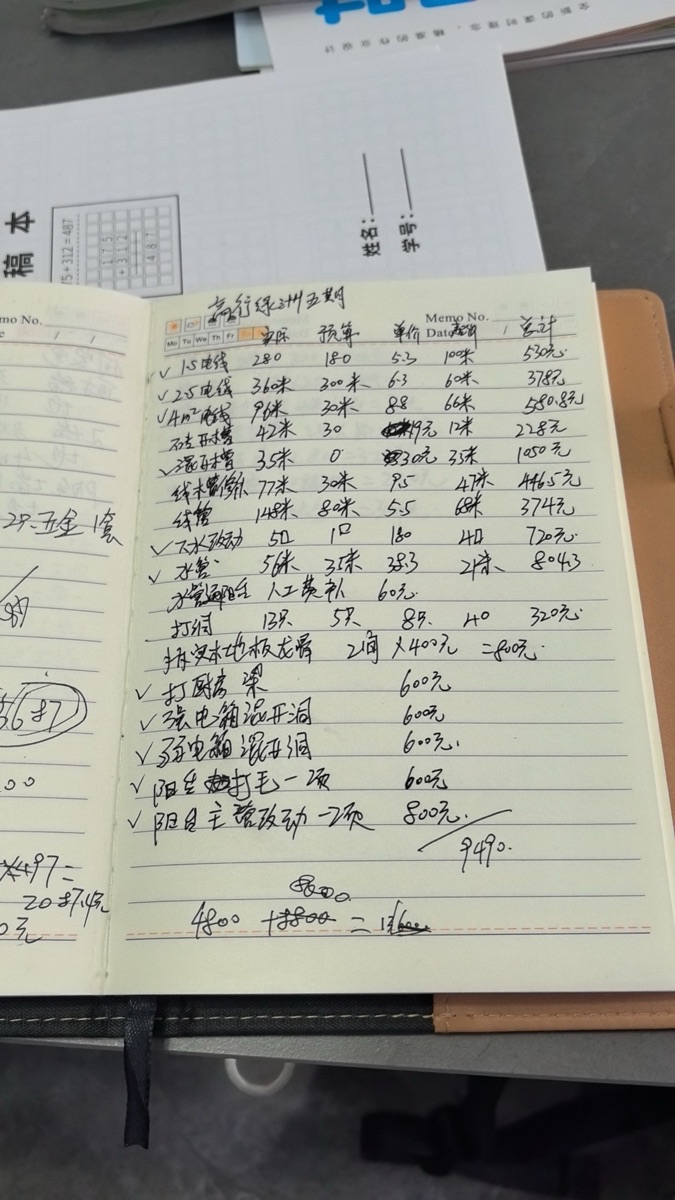 全新的课时理念，精准的作业设计
稿本
75 + 312 = 487
1 7 5
+ 3 1 2
4 8 7
姓名：
学号：
mo No.
Memo No.
Mo Tu We Th Fr
Date
高行绿洲五期
实际 预算 单价 总计
1.5电线 280 180 5.3 100米 530元
2.5电线 360米 300米 6.3 60米 378元
4m²电线 96米 30米 8.8 66米 580.8元
砖开槽 42米 30 19元 12米 228元
混开槽 35米 0 30元 35米 1050元
线槽修补 77米 30米 9.5 47米 446.5元
线管 148米 80米 5.5 68米 374元
下水改动 5口 1口 180 4口 720元
水管 56米 35米 38.3 21米 804.3
人工费补 60元
打洞 13只 5只 8只 40 320元
拆实木地板龙骨 2间 ×400元 =800元
打厨房梁 600元
强电箱混开洞 600元
弱电箱混开洞 600元
阳台打毛一项 600元
阳台主管改动一项 800元
9490
8800
4800 +8800 =
五金1套
97=
2087.4元
0元